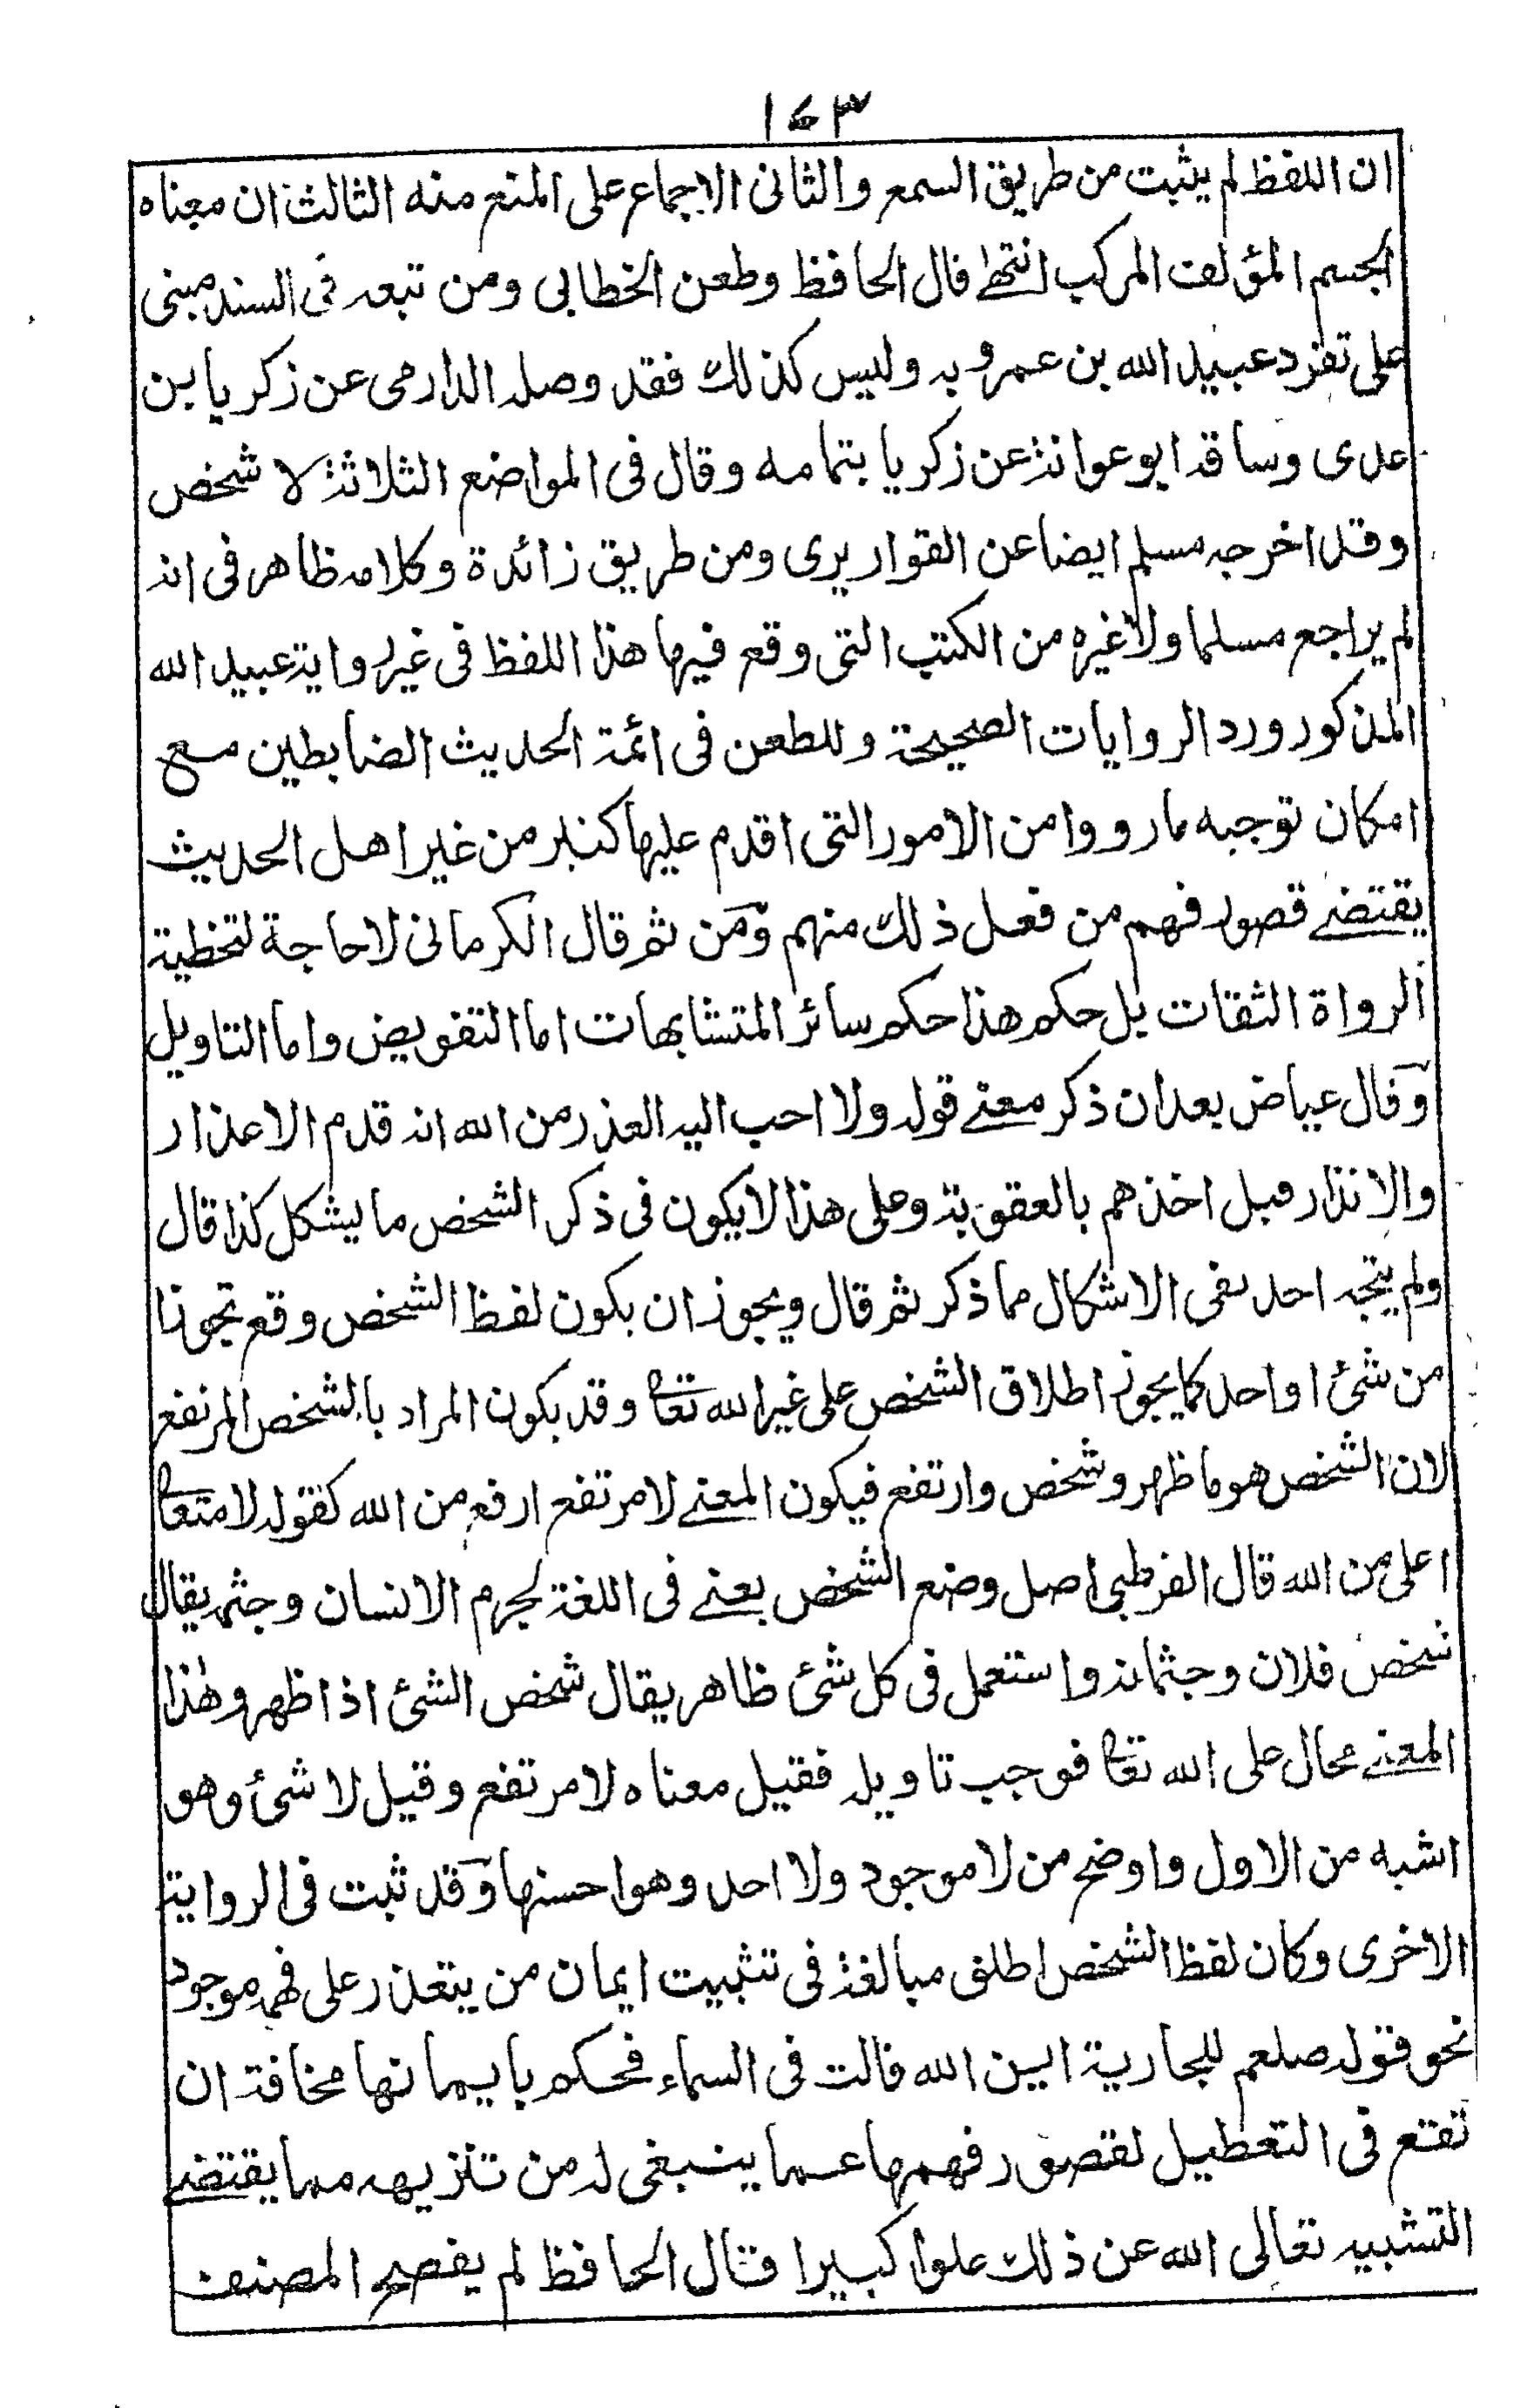 ١٤٣
ان اللفظ لم يثبت من طريق السمع والثانى الاجماع على المنع منه الثالث ان معناه
الجسم المؤلف المركب انتهى قال الحافظ وطعن الخطابى ومن تبعه فى السند مبنى
على تفرد عبيد الله بن عمرو به وليس كذلك فقد وصله الدارمى عن زكريا بن
عدى وساقه ابو عوانة عن زكريا بتمامه وقال فى المواضع الثلاثة لا شخص
وقد اخرجه مسلم ايضا عن القواريرى ومن طريق زائدة وكلامه ظاهر فى انه
لم يراجع مسلما ولا غيره من الكتب التى وقع فيها هذا اللفظ فى غير رواية عبيد الله
المذكور ورد الروايات الصحيحة وللطعن فى ائمة الحديث الضابطين مع
امكان توجيه ما رووا من الامور التى اقدم عليها كثير من غير اهل الحديث
يقتضى قصور فهم من فعل ذلك منهم ومن ثم قال الكرمانى لا حاجة لتخطية
الرواة الثقات بل حكم هذا حكم سائر المتشابهات اما التفويض واما التاويل
وقال عياض بعد ان ذكر معنى قوله ولا احب اليه العذر من الله انه قدم الاعذار
والانذار قبل اخذهم بالعقوبة وعلى هذا لا يكون فى ذكر الشخص ما يشكل كذا قال
ولم يتجه احد نفى الاشكال مما ذكر ثم قال ويجوز ان يكون لفظ الشخص وقع تجوزا
من شئ او احد كما يجوز اطلاق الشخص على غير الله تعالى وقد يكون المراد بالشخص المرتفع
لان الشخص هو ما ظهر وشخص وارتفع فيكون المعنى لا مرتفع ارفع من الله كقوله لا متعالى
اعلى من الله قال القرطبى اصل وضع الشخص يعنى فى اللغة لجرم الانسان وجثمه يقال
شخص فلان وجثمانه واستعمل فى كل شئ ظاهر يقال شخص الشئ اذا ظهر وهذا
المعنى محال على الله تعالى فوجب تاويله فقيل معناه لا مرتفع وقيل لا شئ وهو
اشبه من الاول واوضح من لا موجود ولا احد وهو احسنها وقد ثبت فى الرواية
الاخرى وكان لفظ الشخص اطلق مبالغة فى تثبيت ايمان من يتعذر على فهمه موجود
نحو قوله صلعم للجارية اين الله قالت فى السماء فحكم بايمانها مخافة ان
تقع فى التعطيل لقصور فهمها عما ينبغى له من تنزيهه مما يقتضى
التشبيه تعالى الله عن ذلك علوا كبيرا قال الحافظ لم يفصح المصنف